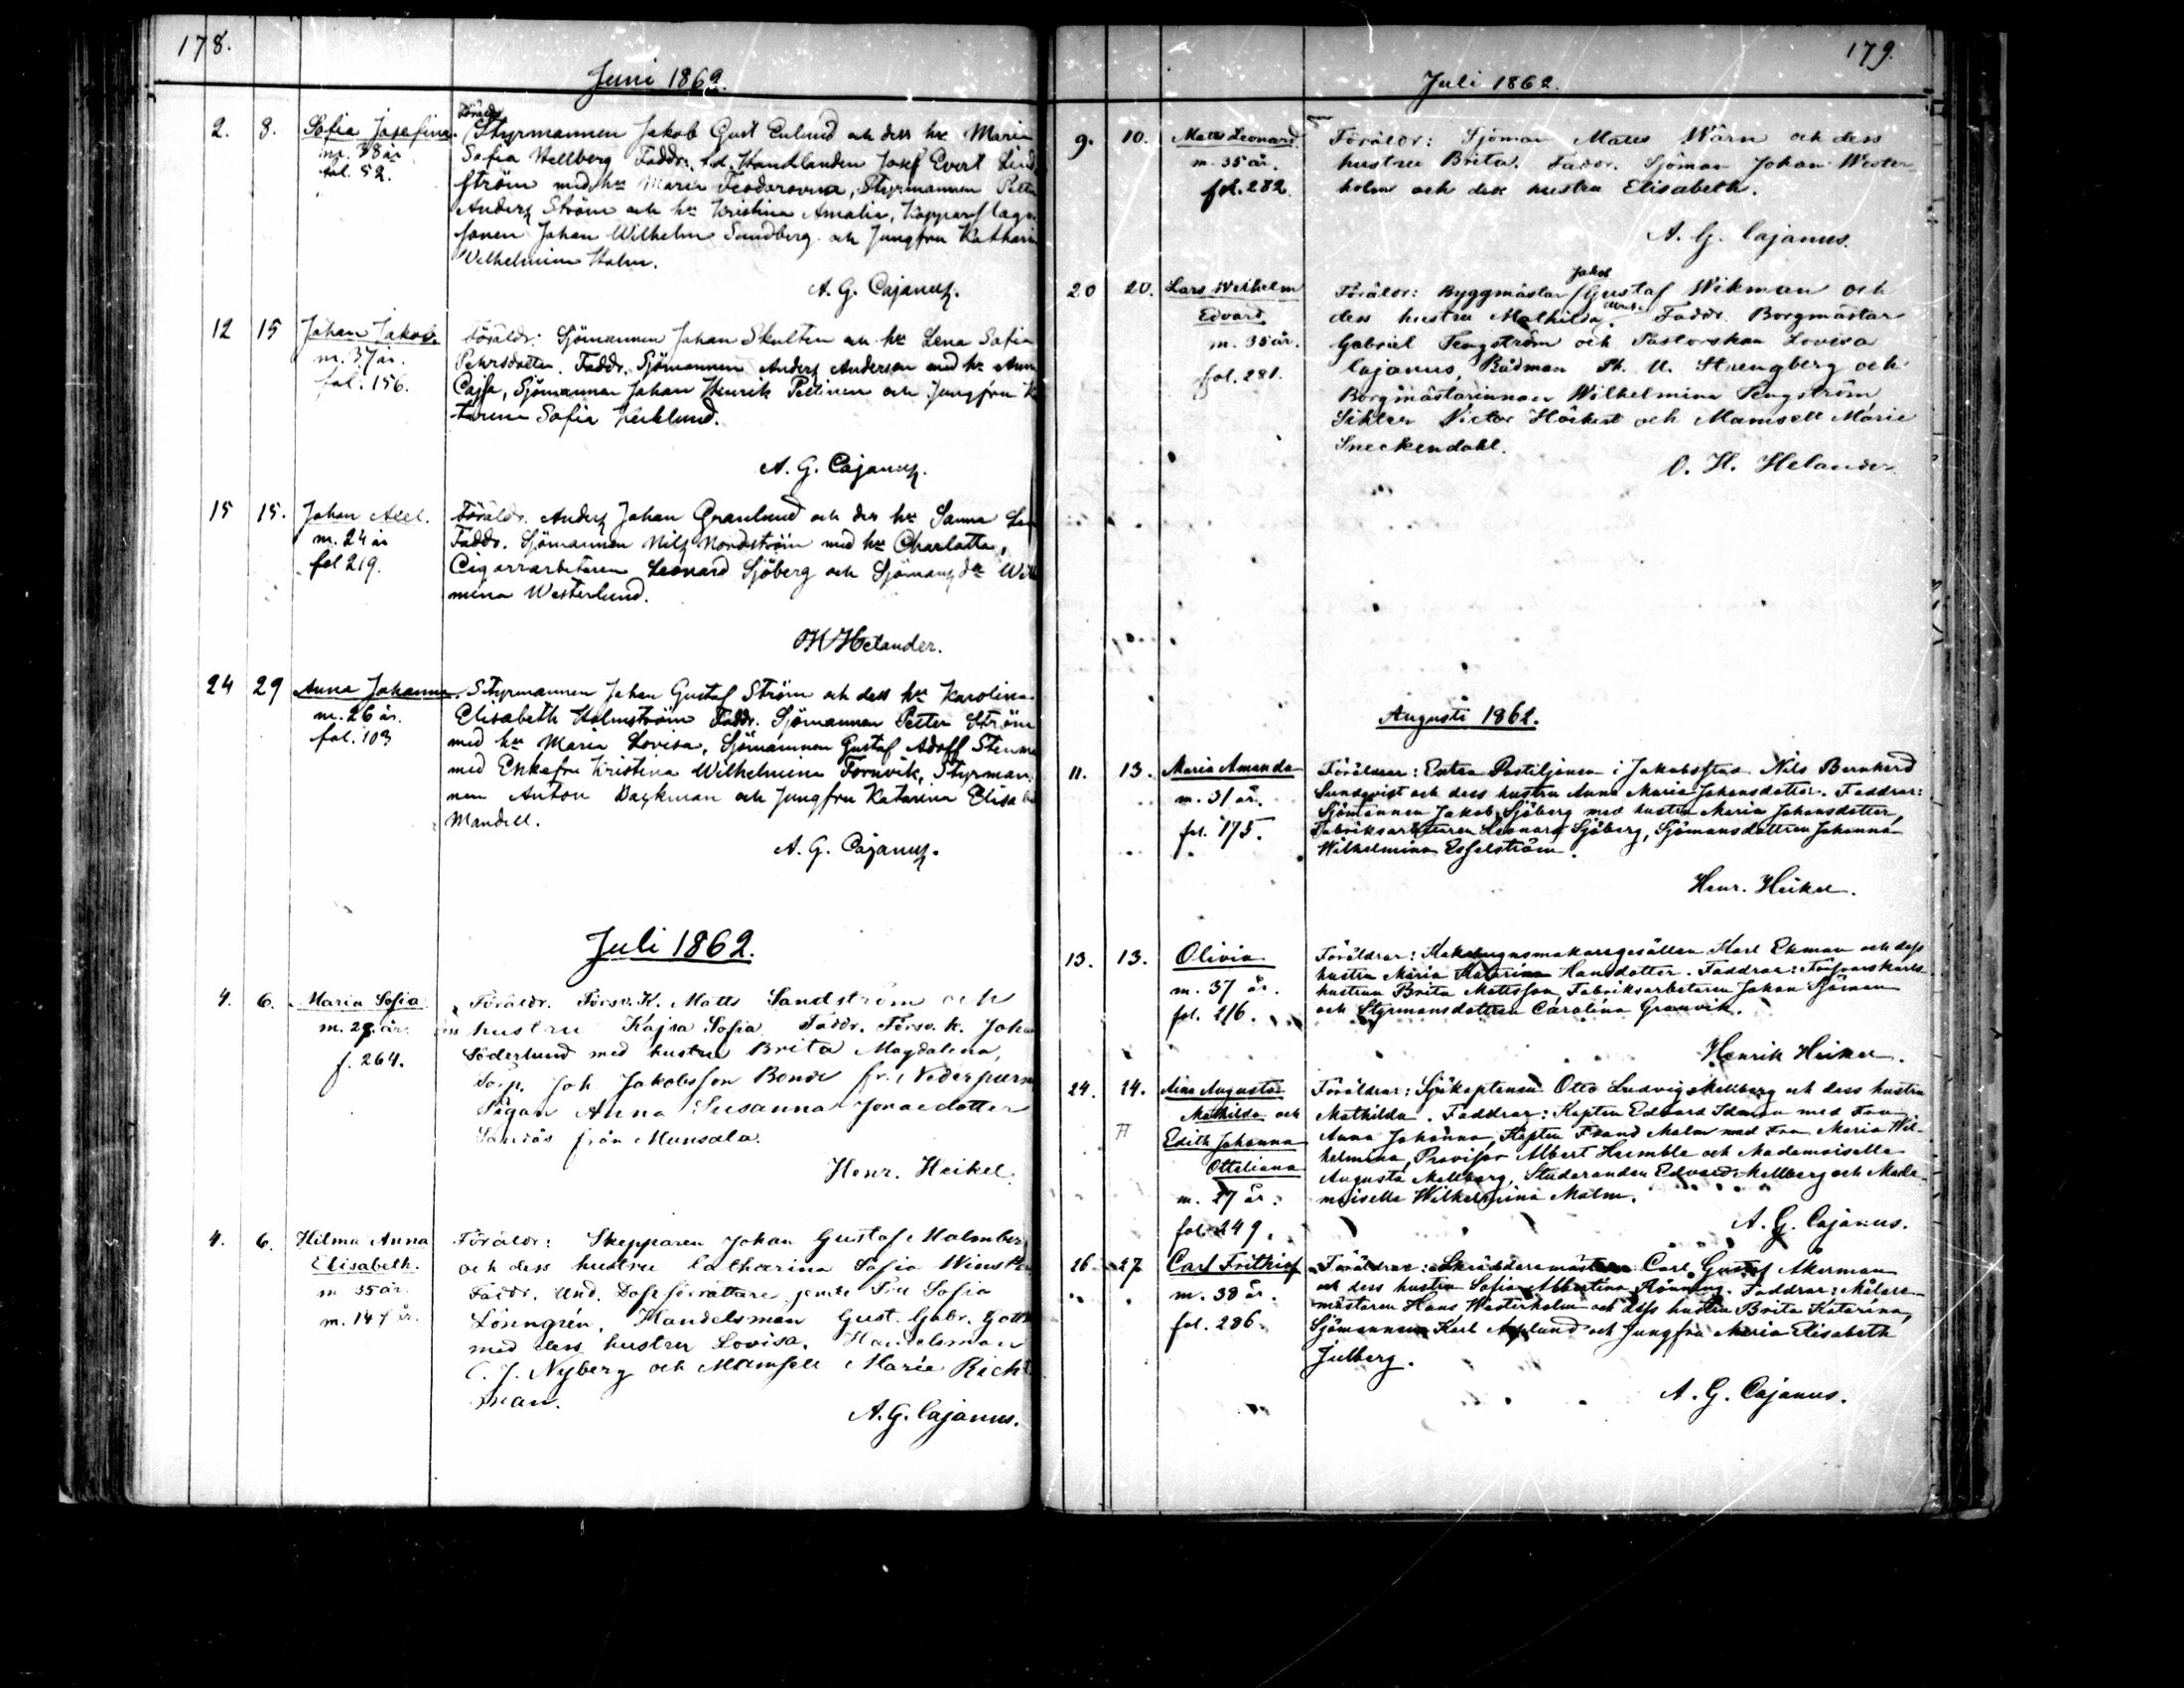 178.
Juni 1862.
2. 8. Sofia Josefina.
m. 38 år
fol. 52.
Föräldr
Styrmannen Jakob Gust Enlund och dess hu Maria
Sofia Hellberg Faddr: Handlanden Josef Evert Lind
ström med hu Maria Feodorovna, Styrmannen Petter
Anderz Ström och hu Kristina Amalia, Kopparslaga
sonen Johan Wilhelm Sundberg och Jungfru Katharin
Wilhelmina Holm.
A. G. Cajanuz.
12 15 Johan Jakob.
m. 37 år.
fol. 156.
Föräldr: Sjömannen Johan Skulten och hu Lena Sofia
Pehrsdotter. Faddr. Sjömannen Anderz Anderson med hu Anna
Cajsa, Sjömannen Johan Henrik Pellinen och Jungfru
Sofia
A. G. Cajanuz.
15 15. Johan Axel.
m. 24 år
fol 219.
Föräldr. Anderz Johan Granlund och des hu Sanna
Faddr. Sjömannen Nilz Nordström med hu Charlotta,
Cigarrarbetaren Leonard Sjöberg och Sjömanz dr Wil
mina Westerlund.
Helander.
24 29 Anna Johanna.
m. 26 år.
fol. 103
Styrmannen Johan Gustaf Ström och dess hu Karolina
Elisabeth Holmström Faddr. Sjömannen Petter Ström
med hu Maria Lovisa, Sjömannen Gustaf Adolf Stenma
med Enkefru Kristina Wilhelmina Fornvik, Styrman
nen Anton Backman och Jungfru Katarina Elisa
Mandell.
A. G. Cajanuz.
Juli 1862.
4. 6. Maria Sofia
m. år
f. 264.
Föräldr. Försv. K. Matts Sandström och
hustru Kajsa Sofia Faddr. Försv. k. Joha
Söderlund med hustru Brita Magdalena,
Joh Jakobsson Bonde fr. Nederpurm
Pigan Anna Susanna Jonaedotter
Sandås från Munsala.
Henr. Heikel.
4. 6. Hilma Anna
Elisabeth.
m 35 år.
m. 147 år.
Föräldr: Skepparen Johan Gustaf Malmber
och dess hustru Catharina Sofia
Faddr. Und. Fru Sofia
Lönngrén, Handelsman Gust. Gabr.
med dess hustru Lovisa, Handelsman
C. J. Nyberg och Mamsell Marie Rich
man.
A. G. Cajanus.
179.
Juli 1862.
9. 10. Matts Leonard
m. 35 år.
fol. 282.
Föräldr: Sjöman Matts Wärn och dess
hustru Brita. Faddr. Sjöman Johan Wester-
holm och dess hustru Elisabeth.
A. G. Cajanus.
20 20. Lars Wilhelm
Edvard
m. 35 år.
fol. 281.
Jakob
Föräldr: Byggmästar Gustaf Wikman och
dess hustru Mathilda. Faddr. Borgmästar
Gabriel Tengström och Pastorskan Lovisa
Cajanus, Rådman Ph. U. Strengberg och
Borgmästarinnan Wilhelmina Tengström
Victor Höckert och Mamsell Marie
Sneckendahl.
O. H. Helander
Augusti 1862.
11. 13. Maria Amanda
m. 31 år.
fol. 175.
Föräldrar: Extra Postiljonen i Jakobstad Nils Bernhard
Sundqvist och dess hustru Anna Maria Johansdotter. Faddrar:
Sjömannen Jakob Sjöberg med hustru Maria Johansdotter,
Fabriksarbetaren Leonard Sjöberg, Sjömansdottren Johanna
Wilhelmina Esselström.
Henr. Heikel.
13. 13. Olivia
m. 37 år.
fol. 216.
Föräldrar: Kakelugnsmakaregesällen Karl Ekman och dess
hustru Maria Katarina Hansdotter. Faddrar: Försvarskarls
hustrun Brita Mattsson, Fabriksarbetaren Johan Sjöman
och Styrmansdottren Carolina Granvik.
Henrik Heikel.
24. 14. Aina Augusta
Mathilda och
Edith Johanna
Otteliana
m. 27 år.
fol. 249.
Föräldrar: Sjökaptenen Otto Ludvig Mellberg och dess hustru
Mathilda. Faddrar: Kapten Edvard Idman med Fru
Anna Johanna, Kapten Frand Malm med Fru Maria Wil-
helmina, Provisor Albert Humble och Mademoiselle
Augusta Mellberg, Studeranden Edvard Mellberg och Made-
moiselle Wilhelmina Malm.
A. G. Cajanus.
26 27 Carl Frithiof
m. 38 år.
fol. 286.
Föräldrar: Skräddaremästaren Carl Gustaf Åkerman
och dess hustru Sofia Albertina Rönning. Faddrar: Målare-
mästaren Hans Westerholm och dess hustru Brita Katarina,
Sjömannen Karl Asplund och Jungfru Maria Elisabeth
Julberg.
A. G. Cajanus.